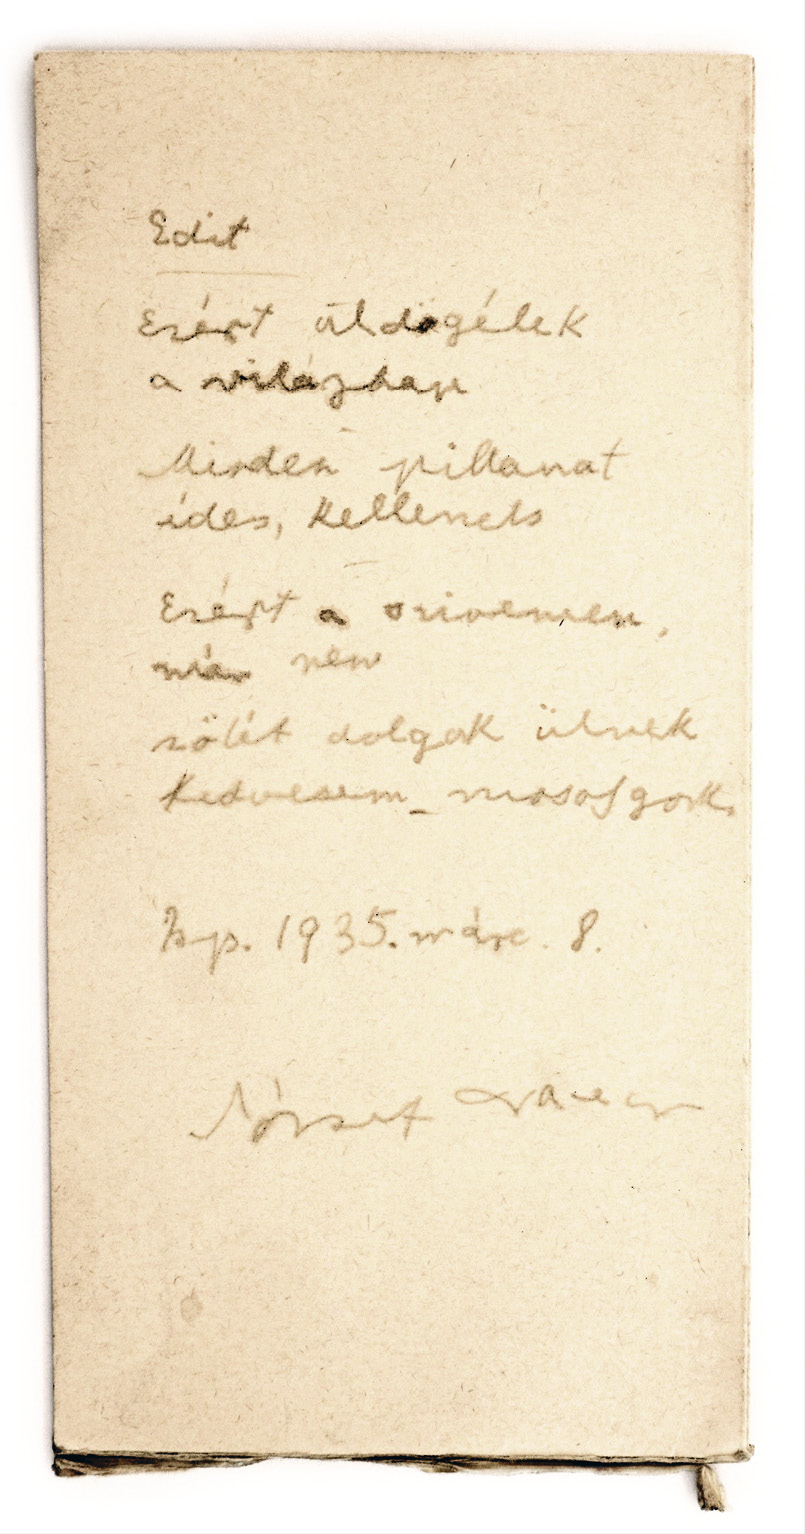 Edit
Ezért üldögélek
a világban
Minden pillanat
édes, kellemes
Ezért a szivemen,
már nem
sötét dolgok ülnek
kedvesem – mosolygok.
Bp. 1935. márc. 8.
József